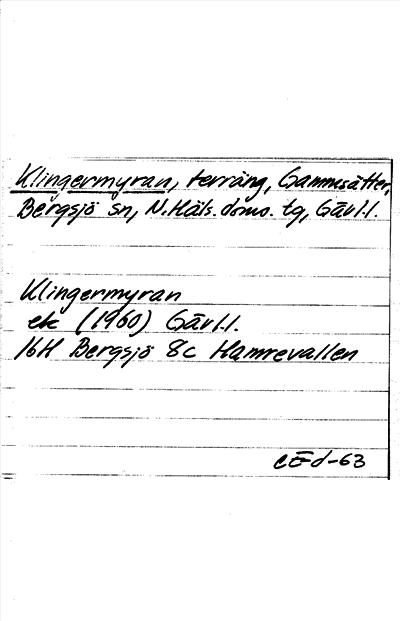 Klingermyran, terräng, Gammsätter,
Bergsjö sn, N.Häls. doms. tg, Gävl.l.
Klingermyran
ek (1960) Gävl.l.
16H Bergsjö 8c Hamrevallen